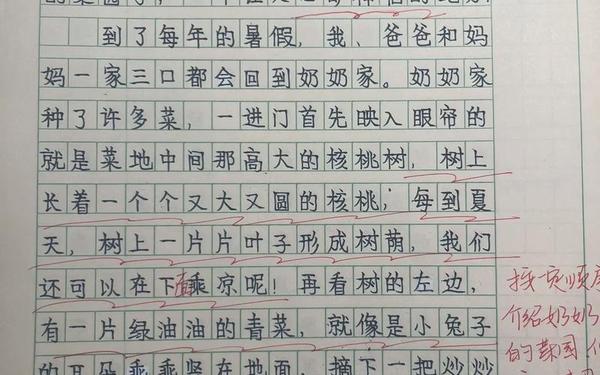 到了每年的暑假，我、爸爸和妈
妈一家三口都会回到奶奶家。奶奶家
种了许多菜，一进门首先映入眼帘的
就是菜地中间那高大的核桃树，树上
长着一个个又大又圆的核桃，每到夏
天，树上一片片叶子形成树荫，我们
还可以在下面乘凉呢！再看树的左边，
有一片绿油油的青菜，就像是小兔子
的耳朵乖乖竖在地面，摘下一把炒炒
按一定顺序
介绍奶奶
的菜园